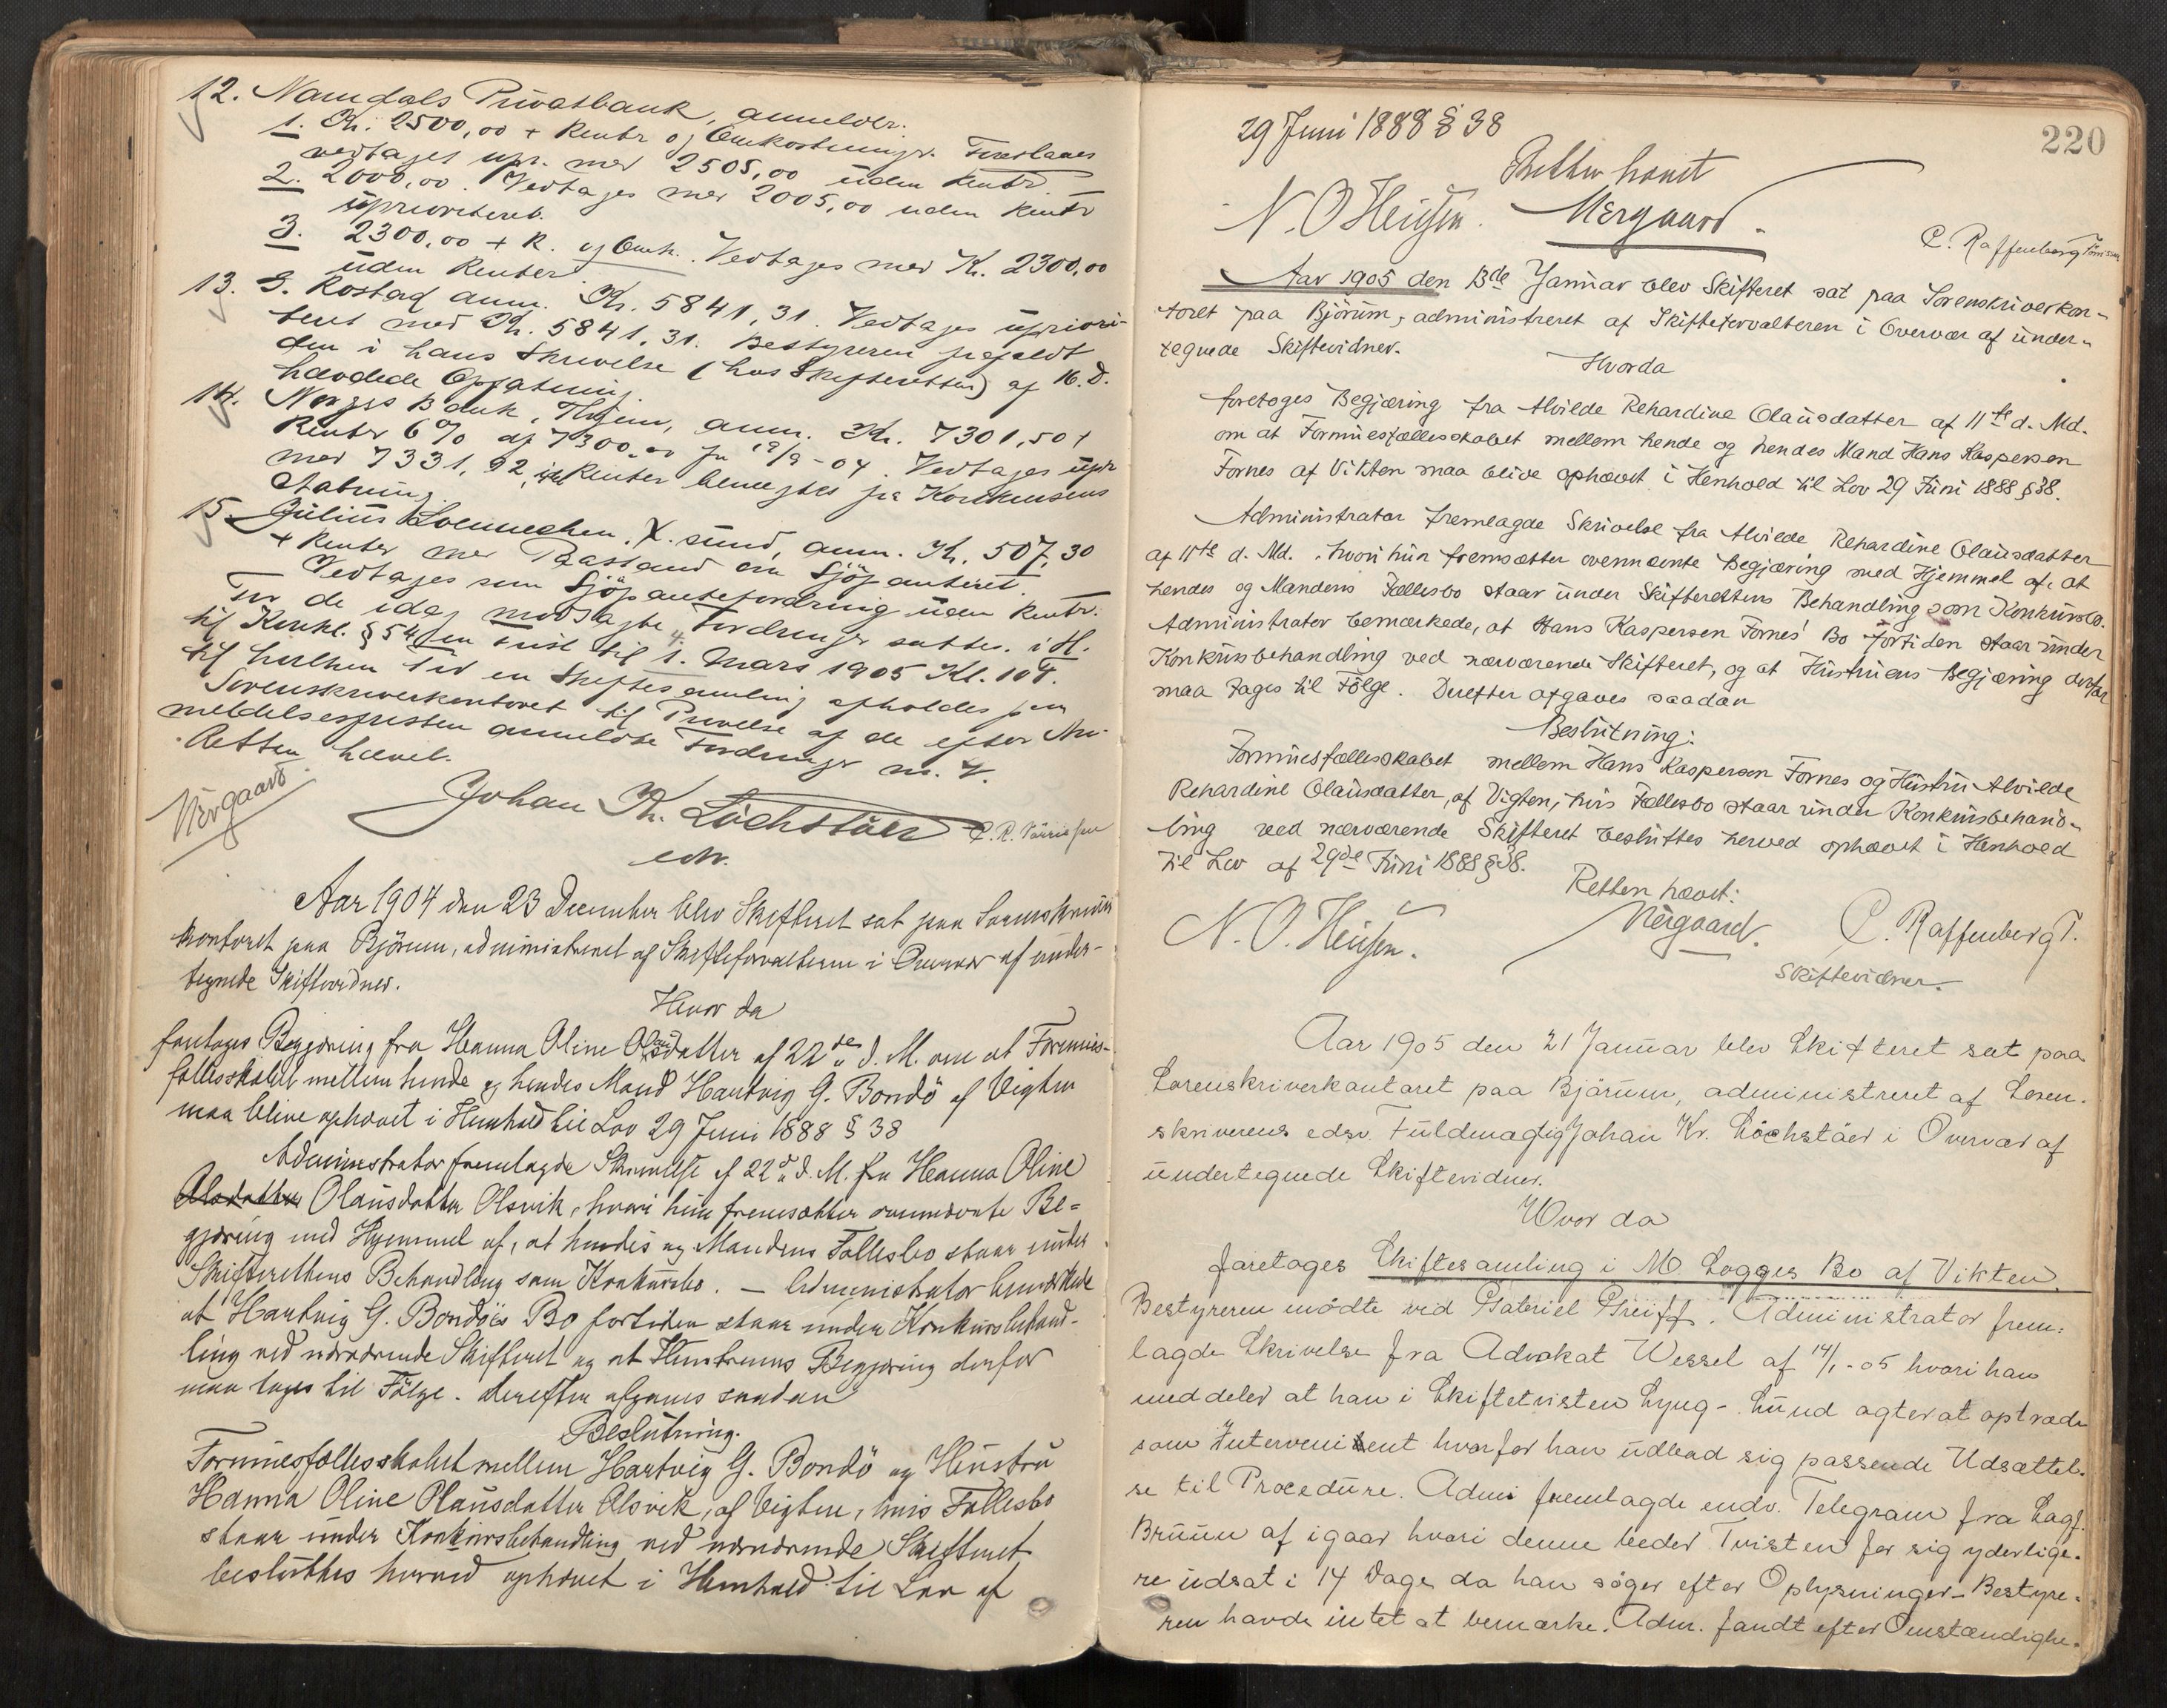 12. Namdals Privatbank, anmelder.
1. Kr. 2500,00 + Renter og Omkostninger. Foreslaaes
vedtaget upr. med 2505,00 uden Renter.
2. 2000,00. Vedtages med 2005,00 uden Renter
uprioriteret.
3. 2300,00 + R. og Omk. Vedtages med Kr. 2300,00
uden Renter
13. S. Rostad anm. Kr. 5841,31. Vedtages upriori-
teret med Kr. 5841,31. Bestyreren frafaldt
den i hans Skrivelse (hos Skifteretten) af 16. d.
hævdede Opfatning.
14. Norges Bank, Thjem, anm. Kr. 7301,50 +
Renter 6% af 7300,00 fra 19/9-04. Vedtages upr
med 7331,92, Renter beregnes fra Konkursens
Aabning.
15. Julius Loennechen. X.sund, anm. Kr. 507,30
+ Renter med Paastand om Sjöpanteret.
Vedtages som Sjöpantefordring uden Renter.
For de idag modtagne Fordringer sættes i H.
til Konkl. § 54 en Frist til 1. Mars 1905 Kl. 10 F.
til hvilken Tid en Skiftesamling afholdes paa
Sorenskriverkontoret til Prövelse af de efter An-
meldelsesfristen anmeldte Fordringer m. V.
Retten hævet.
Nergaard
Johan Kr. Löchstöer
edv.
Aar 1904 den 23 December blev Skifteret sat paa Sorenskriver
kontoret paa Björum, administreret af Skifteforvalteren i Overvær af under-
tegnede Skiftevidner.
Hvor da
foretoges Begjæring fra Hanna Oline Olausdatter af 22de d. M. om at Formues-
fællesskabet mellem hende og hendes Mand Hartvig G. Bondö af Vigten
maa blive ophævet i Henhold til Lov 29 Juni 1888 § 38
Administrator fremlagde Skrivelse af 22d d. M. fra Hanna Oline
Olsdatter Olausdatter Alsvik, hvori hun fremsætter ovennævnte Be=
gjæring med Hjemmel af, at hendes og Mandens Fællesbo staar under
Skifterettens Behandling som Konkursbo. — Administrator bemærkede
at Hartvig G. Bondöes Bo fortiden staar under Konkursbehand-
ling ved nærværende Skifteret og at Hustruens Begjæring derfor
maa tages til Fölge. Derefter afgaves saadan
Beslutning.
Formuesfællesskabet mellem Hartvig G. Bondö og Hustru
Hanna Oline Olausdatter Alsvik, af Vigten, hvis Fællesbo
staar under Konkursbehandling ved nærværende Skifteret
besluttes herved ophævet i Henhold til Lov af
220
29 Juni 1888 § 38
Retten hævet
N. O. Heusen. Nergaard.
C. Raffenberg
Aar 1905 den 13de Januar blev Skifteret sat paa Sorenskriverkon-
toret paa Björum, administreret af Skifteforvalteren i Overvær af under-
tegnede Skiftevidner.
Hvorda
foretoges Begjæring fra Alvilde Rehardine Olausdatter af 11te d. Md.
om at Formuesfællesskabet mellem hende og hendes Mand Hans Kaspersen
Fornes af Vikten maa blive ophævet i Henhold til Lov 29 Juni 1888 § 38.
Administrator fremlagde Skrivelse fra Alvilde Rehardine Olausdatter
af 11te d. Md., hvori hun fremsætter ovennævnte Begjæring med Hjemmel af, at
hendes og Mandens Fællesbo staar under Skifterettens Behandling som Konkursbo.
Administrator bemærkede, at Hans Kaspersen Fornes' Bo fortiden staar under
Konkursbehandling ved nærværende Skifteret, og at Hustruens Begjæring derfor
maa tages til Fölge. Derefter afgaves saadan
Beslutning:
Formuesfællesskabet mellem Hans Kaspersen Fornes og Hustru Alvilde
Rehardine Olausdatter, af Vigten, hvis Fællesbo staar under Konkursbehand-
ling ved nærværende Skifteret besluttes herved ophævet i Henhold
til Lov af 29de Juni 1888 § 38.
Retten hævet:
N. O. Heusen. Nergaard. C. Raffenberg T.
Skiftevidner.
Aar 1905 den 21 Januar blev Skifteret sat paa
Sorenskriverkontoret paa Björum, administreret af Soren-
skriverens edsv. Fuldmægtig Johan Kr. Löchstöer i Overvær af
undertegnede Skiftevidner.
Hvor da
foretoges Skiftesamling i M Logges Bo af Vikten.
Bestyreren mödte ved Gabriel Greiff. Administrator frem-
lagde Skrivelse fra Advokat Wessel af 14/1-05 hvori han
meddeler at han i Skiftetvisten Lyng-Lund agter at optræde
som Intervenient hvorfor han udbad sig passende Udsættel-
se til Procedure. Admi fremlagde endv. Telegram fra Sagf.
Bruun af igaar hvori denne beder Tvisten for sig yderlige-
re udsat i 14 Dage da han söger efter Oplysninger. Bestyre-
ren havde intet at bemærke. Adm. fandt efter Omstændighe-